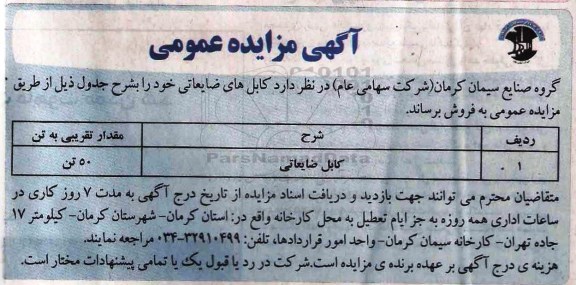 آگهی مزایده عمومی
گروه صنایع سیمان کرمان(شرکت سهامی عام) در نظر دارد کابل های ضایعاتی خود را بشرح جدول ذیل از طریق
مزایده عمومی به فروش برساند.
ردیف شرح مقدار تقریبی به تن
۱ کابل ضایعاتی ۵۰ تن
متقاضیان محترم می توانند جهت بازدید و دریافت اسناد مزایده از تاریخ درج آگهی به مدت ۷ روز کاری در
ساعات اداری همه روزه به جز ایام تعطیل به محل کارخانه واقع در: استان کرمان- شهرستان کرمان- کیلومتر ۱۷
جاده تهران- کارخانه سیمان کرمان- واحد امور قراردادها، تلفن: ۳۲۹۱۰۴۹۹-۰۳۴ مراجعه نمایند.
هزینه ی درج آگهی بر عهده برنده ی مزایده است.شرکت در رد یا قبول یک یا تمامی پیشنهادات مختار است.